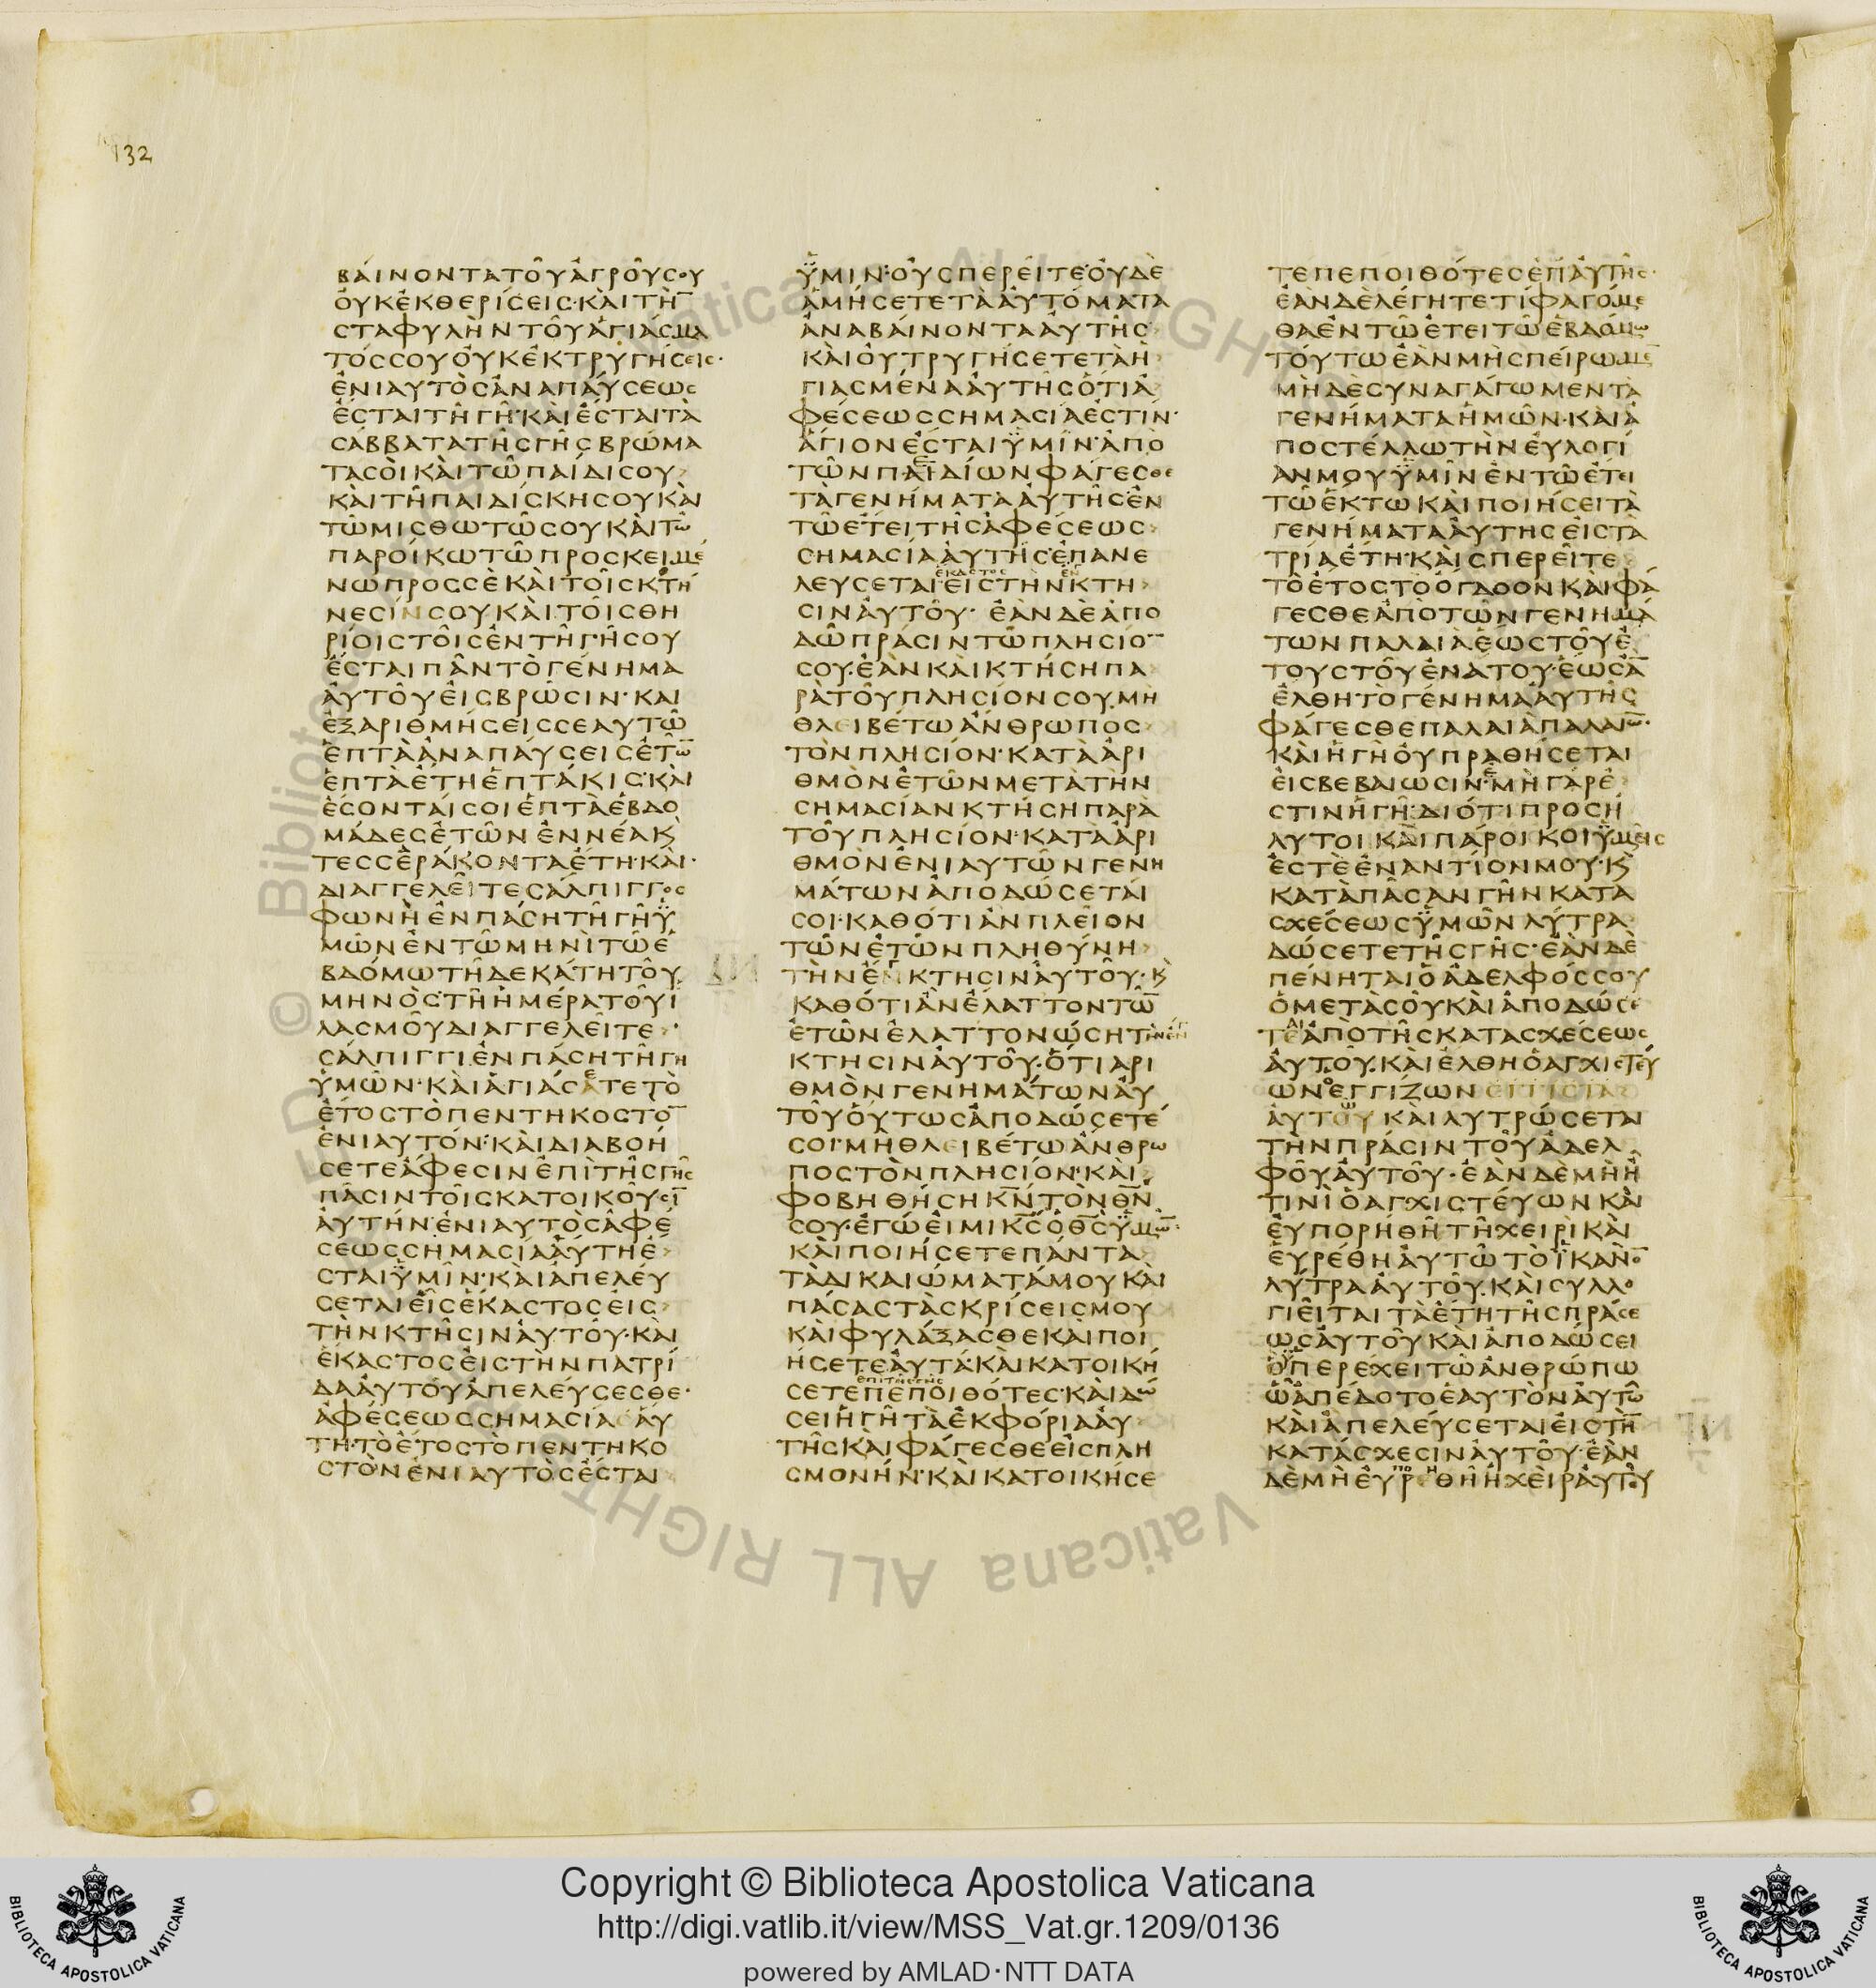 132
ΒΑΙΝΟΝΤΑΤΟΥΑΓΡΟΥΣΟΥ
ΟΥΚΕΚΘΕΡΙΣΕΙΣ·ΚΑΙΤΗ̅
ΣΤΑΦΥΛΗΝΤΟΥΑΓΙΑΣΜΑ
ΤΟΣΣΟΥΟΥΚΕΚΤΡΥΓΗΣΕΙΣ·
ΕΝΙΑΥΤΟΣΑΝΑΠΑΥΣΕΩΣ
ΕΣΤΑΙΤΗΓΗ·ΚΑΙΕΣΤΑΙΤΑ
ΣΑΒΒΑΤΑΤΗΣΓΗΣΒΡΩΜΑ
ΤΑΣΟΙΚΑΙΤΩΠΑΙΔΙΣΟΥ
ΚΑΙΤΗΠΑΙΔΙΣΚΗΣΟΥΚΑΙ
ΤΩΜΙΣΘΩΤΩΣΟΥΚΑΙΤΩ
ΠΑΡΟΙΚΩΤΩΠΡΟΣΚΕΙΜΕ
ΝΩΠΡΟΣΣΕΚΑΙΤΟΙΣΚΤΗ
ΝΕΣΙΝΣΟΥΚΑΙΤΟΙΣΘΗ
ΡΙΟΙΣΤΟΙΣΕΝΤΗΓΗΣΟΥ
ΕΣΤΑΙΠΑΝΤΟΓΕΝΗΜΑ
ΑΥΤΟΥΕΙΣΒΡΩΣΙΝ·ΚΑΙ
ΕΞΑΡΙΘΜΗΣΕΙΣΣΕΑΥΤΩ
ΕΠΤΑΑΝΑΠΑΥΣΕΙΣΕΤΩ̅
ΕΠΤΑΕΤΗΕΠΤΑΚΙΣ·ΚΑΙ
ΕΣΟΝΤΑΙΣΟΙΕΠΤΑΕΒΔΟ
ΜΑΔΕΣΕΤΩΝΕΝΝΕΑΚ̀
ΤΕΣΣΕΡΑΚΟΝΤΑΕΤΗ·ΚΑΙ·
ΔΙΑΓΓΕΛΕΙΤΕΣΑΛΠΙΓΓΟΣ
ΦΩΝΗΕΝΠΑΣΗΤΗΓΗΥ
ΜΩΝΕΝΤΩΜΗΝΙΤΩΕ
ΒΔΟΜΩΤΗΔΕΚΑΤΗΤΟΥ
ΜΗΝΟΣ·ΤΗΗΜΕΡΑΤΟΥΙ
ΛΑΣΜΟΥΔΙΑΓΓΕΛΕΙΤΕ
ΣΑΛΠΙΓΓΙΕΝΠΑΣΗΤΗΓΗ
ΥΜΩΝ·ΚΑΙΑΓΙΑΣΑΤΕΤΟ
ΕΤΟΣΤΟΠΕΝΤΗΚΟΣΤΟ̅
ΕΝΙΑΥΤΟΝ·ΚΑΙΔΙΑΒΟΗ
ΣΕΤΕΑΦΕΣΙΝΕΠΙΤΗΣΓΗΣ
ΠΑΣΙΝΤΟΙΣΚΑΤΟΙΚΟΥΣΙ̅
ΑΥΤΗΝ·ΕΝΙΑΥΤΟΣΑΦΕ
ΣΕΩΣΣΗΜΑΣΙΑΑΥΤΗΕ
ΣΤΑΙΥΜΙΝ·ΚΑΙΑΠΕΛΕΥ
ΣΕΤΑΙΕΙΣΕΚΑΣΤΟΣΕΙΣ
ΤΗΝΚΤΗΣΙΝΑΥΤΟΥ·ΚΑΙ
ΕΚΑΣΤΟΣΕΙΣΤΗΝΠΑΤΡΙ
ΔΑΑΥΤΟΥΑΠΕΛΕΥΣΕΣΘΕ·
ΑΦΕΣΕΩΣΣΗΜΑΣΙΑΑΥ
ΤΗ·ΤΟΕΤΟΣΤΟΠΕΝΤΗΚΟ
ΣΤΟΝΕΝΙΑΥΤΟΣΕΣΤΑΙ
ΥΜΙΝ·ΟΥΣΠΕΡΕΙΤΕ·ΟΥΔΕ
ΑΜΗΣΕΤΕΤΑΑΥΤΟΜΑΤΑ
ΑΝΑΒΑΙΝΟΝΤΑΑΥΤΗΣ
ΚΑΙΟΥΤΡΥΓΗΣΕΤΕΤΑΗ
ΓΙΑΣΜΕΝΑΑΥΤΗΣΟΤΙΑ
ΦΕΣΕΩΣΣΗΜΑΣΙΑΕΣΤΙΝ·
ΑΓΙΟΝΕΣΤΑΙΥΜΙΝ·ΑΠΟ
ΤΩΝΠΑΙΔΙΩΝΦΑΓΕΣΘΕ
ΤΑΓΕΝΗΜΑΤΑΑΥΤΗΣΕΝ
ΤΩΕΤΕΙΤΗΣΑΦΕΣΕΩΣ
ΣΗΜΑΣΙΑΑΥΤΗΣ·ΕΠΑΝΕ
ΛΕΥΣΕΤΑΙΕΙΣΤΗΝΚΤΗ
ΣΙΝΑΥΤΟΥ· ΕΑΝΔΕΑΠΟ
ΔΩΠΡΑΣΙΝΤΩΠΛΗΣΙΟ̅
ΣΟΥ·ΕΑΝΚΑΙΚΤΗΣΗΠΑ
ΡΑΤΟΥΠΛΗΣΙΟΝΣΟΥ·ΜΗ
ΘΛΕΙΒΕΤΩΑΝΘΡΩΠΟΣ
ΤΟΝΠΛΗΣΙΟΝ·ΚΑΤΑΑΡΙ
ΘΜΟΝΕΤΩΝΜΕΤΑΤΗΝ
ΣΗΜΑΣΙΑΝΚΤΗΣΗΠΑΡΑ
ΤΟΥΠΛΗΣΙΟΝ·ΚΑΤΑΑΡΙ
ΘΜΟΝΕΝΙΑΥΤΩΝΓΕΝΗ
ΜΑΤΩΝΑΠΟΔΩΣΕΤΑΙ
ΣΟΙ·ΚΑΘΟΤΙΑΝΠΛΕΙΟΝ
ΤΩΝΕΤΩΝΠΛΗΘΥΝΗ
ΤΗΝΕΝΚΤΗΣΙΝΑΥΤΟΥ·Κ̀
ΚΑΘΟΤΙΑΝΕΛΑΤΤΟΝΤΩ̅
ΕΤΩΝΕΛΑΤΤΟΝΩΣΗΤΗΝΕΝ
ΚΤΗΣΙΝΑΥΤΟΥ·ΟΤΙΑΡΙ
ΘΜΟΝΓΕΝΗΜΑΤΩΝΑΥ
ΤΟΥΟΥΤΩΣΑΠΟΔΩΣΕΤΕ
ΣΟΙ·ΜΗΘΛΕΙΒΕΤΩΑΝΘΡΩ
ΠΟΣΤΟΝΠΛΗΣΙΟΝ·ΚΑΙ
ΦΟΒΗΘΗΣΗΚ̅Ν̅ΤΟΝΘ̅Ν̅
ΣΟΥ·ΕΓΩΕΙΜΙΚ̅Σ̅ΟΘ̅Σ̅ΥΜΩ̅·
ΚΑΙΠΟΙΗΣΕΤΕΠΑΝΤΑ
ΤΑΔΙΚΑΙΩΜΑΤΑΜΟΥΚΑΙ
ΠΑΣΑΣΤΑΣΚΡΙΣΕΙΣΜΟΥ
ΚΑΙΦΥΛΑΞΑΣΘΕΚΑΙΠΟΙ
ΗΣΕΤΕΑΥΤΑ·ΚΑΙΚΑΤΟΙΚΗ
ΣΕΤΕΠΕΠΟΙΘΟΤΕΣ·ΚΑΙΔΩ
ΣΕΙΗΓΗΤΑΕΚΦΟΡΙΑΑΥ
ΤΗΣΚΑΙΦΑΓΕΣΘΕΕΙΣΠΛΗ
ΣΜΟΝΗΝ·ΚΑΙΚΑΤΟΙΚΗΣΕ
ΤΕΠΕΠΟΙΘΟΤΕΣΕΠΑΥΤΗΣ·
ΕΑΝΔΕΛΕΓΗΤΕΤΙΦΑΓΟΜΕ
ΘΑΕΝΤΩΕΤΕΙΤΩΕΒΔΟΜΩ
ΤΟΥΤΩΕΑΝΜΗΣΠΕΙΡΩΜΕ̅
ΜΗΔΕΣΥΝΑΓΑΓΩΜΕΝΤΑ
ΓΕΝΗΜΑΤΑΗΜΩΝ·ΚΑΙΑ
ΠΟΣΤΕΛΛΩΤΗΝΕΥΛΟΓΙ
ΑΝΜΟΥΥΜΙΝΕΝΤΩΕΤΕΙ
ΤΩΕΚΤΩΚΑΙΠΟΙΗΣΕΙΤΑ
ΓΕΝΗΜΑΤΑΑΥΤΗΣΕΙΣΤΑ
ΤΡΙΑΕΤΗ·ΚΑΙΣΠΕΡΕΙΤΕ
ΤΟΕΤΟΣΤΟΟΓΔΟΟΝΚΑΙΦΑ
ΓΕΣΘΕΑΠΟΤΩΝΓΕΝΗΜΑ
ΤΩΝΠΑΛΑΙΑΕΩΣΤΟΥΕ
ΤΟΥΣΤΟΥΕΝΑΤΟΥ·ΕΩΣΑ̅
ΕΛΘΗΤΟΓΕΝΗΜΑΑΥΤΗΣ
ΦΑΓΕΣΘΕΠΑΛΑΙΑΠΑΛΑΙΩ̅·
ΚΑΙΗΓΗΟΥΠΡΑΘΗΣΕΤΑΙ
ΕΙΣΒΕΒΑΙΩΣΙΝ·ΕΜΗΓΑΡΕ
ΣΤΙΝΗΓΗ·ΔΙΟΤΙΠΡΟΣΗ
ΛΥΤΟΙΚΑΙΠΑΡΟΙΚΟΙΥΜΕΙΣ
ΕΣΤΕΕΝΑΝΤΙΟΝΜΟΥ·Κ̀
ΚΑΤΑΠΑΣΑΝΓΗΝΚΑΤΑ
ΣΧΕΣΕΩΣΥΜΩΝΛΥΤΡΑ
ΔΩΣΕΤΕΤΗΣΓΗΣ·ΕΑΝΔΕ
ΠΕΝΗΤΑΙΟΑΔΕΛΦΟΣΣΟΥ
ΟΜΕΤΑΣΟΥΚΑΙΑΠΟΔΩΣΕ
ΤΕΑΠΟΤΗΣΚΑΤΑΣΧΕΣΕΩΣ
ΑΥΤΟΥ·ΚΑΙΕΛΘΗΟΑΓΧΙΣΤΕΥ
ΩΝΟΕΓΓΙΖΩΝ
ΑΥΤΟΥΚΑΙΛΥΤΡΩΣΕΤΑΙ
ΤΗΝΠΡΑΣΙΝΤΟΥΑΔΕΛ
ΦΟΥΑΥΤΟΥ·ΕΑΝΔΕΜΗΗ
ΤΙΝΙΟΑΓΧΙΣΤΕΥΩΝΚΑΙ
ΕΥΠΟΡΗΘΗΤΗΧΕΙΡΙΚΑΙ
ΕΥΡΕΘΗΑΥΤΩΤΟΙΚΑΝΟ̅
ΛΥΤΡΑΑΥΤΟΥ·ΚΑΙΣΥΛΛΟ
ΓΙΕΙΤΑΙΤΑΕΤΗΤΗΣΠΡΑΣΕ
ΩΣΑΥΤΟΥΚΑΙΑΠΟΔΩΣΕΙ
ΟΥΠΕΡΕΧΕΙΤΩΑΝΘΡΩΠΩ
ΩΑΠΕΔΟΤΟΕΑΥΤΟΝΑΥΤΩ
ΚΑΙΑΠΕΛΕΥΣΕΤΑΙΕΙΣΤΗ̅
ΚΑΤΑΣΧΕΣΙΝΑΥΤΟΥ·ΕΑΝ
ΔΕΜΗΕΥΡΕΘΗΗΧΕΙΡΑΥΤΟΥ
© Biblioteca Apostolica Vaticana ALL RIGHTS RESERVED
Copyright © Biblioteca Apostolica Vaticana
http://digi.vatlib.it/view/MSS_Vat.gr.1209/0136
powered by AMLAD·NTT DATA
BIBLIOTECA APOSTOLICA VATICANA
BIBLIOTECA APOSTOLICA VATICANA